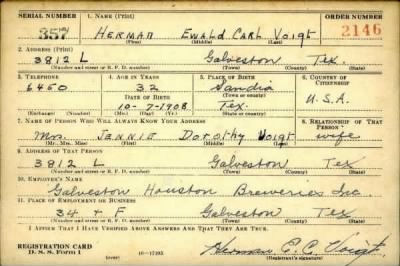 SERIAL NUMBER 1. NAME (Print) ORDER NUMBER
357 HERMAN EWALD CARL VOIGT 2146
(First) (Middle) (Last)
2. ADDRESS (Print)
3812 L Galveston Tex.
(Number and street or R. F. D. number) (Town) (County) (State)
3. TELEPHONE 4. AGE IN YEARS 5. PLACE OF BIRTH 6. COUNTRY OF CITIZENSHIP
6450 32 Sandia
DATE OF BIRTH (Town or county)
10-7-1908 Tex. U.S.A.
(Exchange) (Number) (Mo.) (Day) (Yr.) (State or country)
7. NAME OF PERSON WHO WILL ALWAYS KNOW YOUR ADDRESS 8. RELATIONSHIP OF THAT PERSON
Mrs. Jannie Dorothy Voigt wife
(Mr., Mrs., Miss) (First) (Middle) (Last)
9. ADDRESS OF THAT PERSON
3812 L Galveston Tex
(Number and street or R. F. D. number) (Town) (County) (State)
10. EMPLOYER'S NAME
Galveston Houston Breweries Inc.
11. PLACE OF EMPLOYMENT OR BUSINESS
34 + F Galveston Tex
(Number and street or R. F. D. number) (Town) (County) (State)
I AFFIRM THAT I HAVE VERIFIED ABOVE ANSWERS AND THAT THEY ARE TRUE.
REGISTRATION CARD
D. S. S. Form 1 (over) 16-17105 Herman E. C. Voigt
(Registrant's signature)